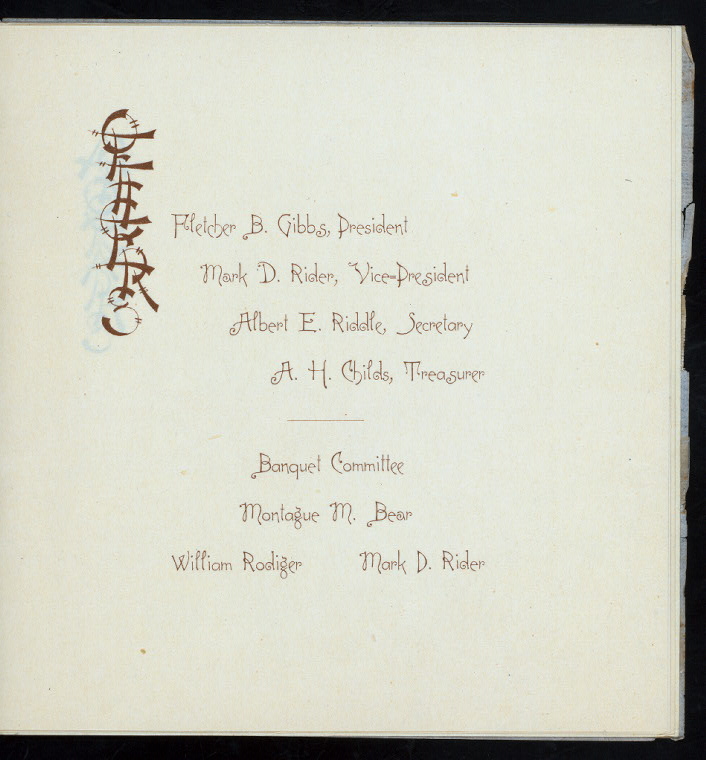 OFFICERS
Fletcher B. Gibbs, President
Mark D. Rider, Vice-President
Albert E. Riddle, Secretary
A. H. Childs, Treasurer
Banquet Committee
Montague M. Bear
William Rodiger Mark D. Rider